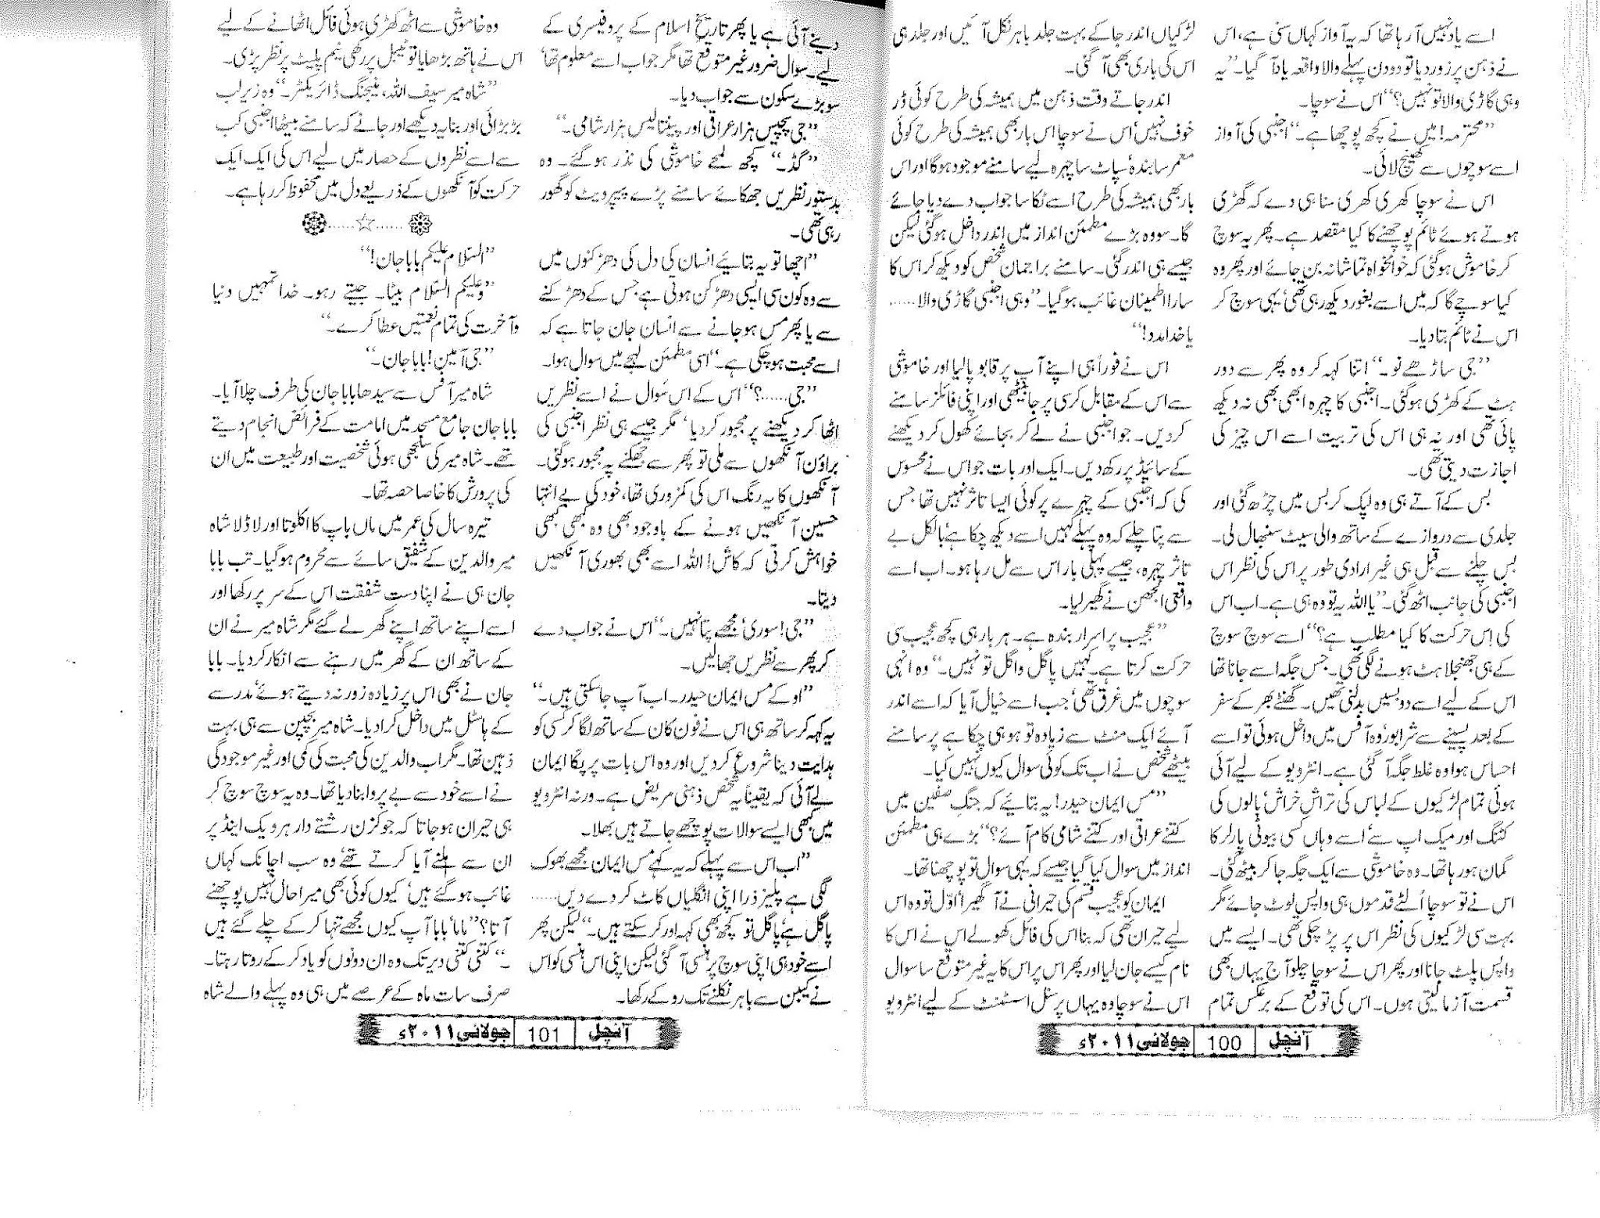 اسے یاد نہیں آ رہا تھا کہ یہ آواز کہاں سنی ہے، اس
نے ذہن پر زور دیا تو دو دن پہلے والا واقعہ یاد آ گیا۔ ”یہ
وہی گاڑی والا تو نہیں؟“ اس نے سوچا۔
”محترمہ! میں نے کچھ پوچھا ہے۔“ اجنبی کی آواز
اسے سوچوں سے کھینچ لائی۔
اس نے سوچا کھری کھری سنا ہی دے کہ گھڑی
ہوتے ہوئے ٹائم پوچھنے کا کیا مقصد ہے۔ پھر یہ سوچ
کر خاموش ہو گئی کہ خوامخواہ تماشا نہ بن جائے اور پھر وہ
کیا سوچے گا کہ میں اسے بغور دیکھ رہی تھی‘ یہی سوچ کر
اس نے ٹائم بتا دیا۔
”جی ساڑھے نو۔“ اتنا کہہ کر وہ پھر سے دور
ہٹ کے کھڑی ہو گئی۔ اجنبی کا چہرہ ابھی بھی نہ دیکھ
پائی تھی اور نہ ہی اس کی تربیت اسے اس چیز کی
اجازت دیتی تھی۔
بس کے آتے ہی وہ لپک کر بس میں چڑھ گئی اور
جلدی سے دروازے کے ساتھ والی سیٹ سنبھال لی۔
بس چلنے سے قبل ہی غیر ارادی طور پر اس کی نظر اس
اجنبی کی جانب اٹھ گئی۔ ”یا اللہ یہ تو وہ ہی ہے۔ اب اس
کی اس حرکت کا کیا مطلب ہے؟“ اسے سوچ سوچ
کے ہی جھنجلاہٹ ہونے لگی تھی۔ جس جگہ اسے جانا تھا
اس کے لیے اسے دو بسیں بدلنی تھیں۔ گھنٹے بھر کے سفر
کے بعد پسینے سے شرابور وہ آفس میں داخل ہوئی تو اسے
احساس ہوا وہ غلط جگہ آ گئی ہے۔ انٹرویو کے لیے آئی
ہوئی تمام لڑکیوں کے لباس کی تراش خراش‘ بالوں کی
کٹنگ اور میک اپ سے اسے وہاں کسی بیوٹی پارلر کا
گمان ہو رہا تھا۔ وہ خاموشی سے ایک جگہ جا کر بیٹھ گئی۔
اس نے تو سوچا الٹے قدموں ہی واپس لوٹ جائے مگر
بہت سی لڑکیوں کی نظر اس پر پڑ چکی تھی۔ ایسے میں
واپس پلٹ جانا اور پھر اس نے سوچا چلو آج یہاں بھی
قسمت آزما لیتی ہوں۔ اس کی توقع کے برعکس تمام
لڑکیاں اندر جا کے بہت جلد باہر نکل آئیں اور جلد ہی
اس کی باری بھی آ گئی۔
اندر جاتے وقت ذہن میں ہمیشہ کی طرح کوئی ڈر
خوف نہیں‘ اس نے سوچا اس بار بھی ہمیشہ کی طرح کوئی
معمر سا بندہ‘ سپاٹ سا چہرہ لیے سامنے موجود ہو گا اور اس
بار بھی ہمیشہ کی طرح اسے ٹکا سا جواب دے دیا جائے
گا۔ سو وہ بڑے مطمئن انداز میں اندر داخل ہو گئی لیکن
جیسے ہی اندر گئی۔ سامنے براجمان شخص کو دیکھ کر اس کا
سارا اطمینان غائب ہو گیا۔ ”وہی اجنبی گاڑی والا......
یا خدا مدد!“
اس نے فوراً ہی اپنے آپ پر قابو پا لیا اور خاموشی
سے اس کے مقابل کرسی پر جا بیٹھی اور اپنی فائلز سامنے
کر دیں۔ جو اجنبی نے لے کر بجائے کھول کر دیکھنے
کے سائیڈ پر رکھ دیں۔ ایک اور بات جو اس نے محسوس
کی کہ اجنبی کے چہرے پر کوئی ایسا تاثر نہیں تھا‘ جس
سے پتا چلے کہ وہ پہلے کہیں اسے دیکھ چکا ہے‘ بالکل بے
تاثر چہرہ، جیسے پہلی بار اس سے مل رہا ہو۔ اب اسے
واقعی الجھن نے گھیر لیا۔
”عجیب پراسرار بندہ ہے۔ ہر بار ہی کچھ عجیب سی
حرکت کرتا ہے۔ کہیں پاگل واگل تو نہیں۔“ وہ انہی
سوچوں میں غرق تھی‘ جب اسے خیال آیا کہ اسے اندر
آئے ایک منٹ سے زیادہ تو ہو ہی چکا ہے پر سامنے
بیٹھے شخص نے اب تک کوئی سوال کیوں نہیں کیا۔
”مس ایمان حیدر! یہ بتائیے کہ جنگ صفین میں
کتنے عراقی اور کتنے شامی کام آئے؟“ بڑے ہی مطمئن
انداز میں سوال کیا گیا جیسے کہ یہی سوال تو پوچھنا تھا۔
ایمان کو عجیب قسم کی حیرانی نے آ گھیرا‘ اوّل تو وہ اس
لیے حیران تھی کہ بنا اس کی فائل کھولے اس نے اس کا
نام کیسے جان لیا اور پھر اس پر اس کا یہ غیر متوقع سا سوال
اس نے سوچا وہ یہاں پرسنل اسسٹنٹ کے لیے انٹرویو
آنچل 100 جولائی ۲۰۱۱ء
دینے آئی ہے یا پھر تاریخ اسلام کے پروفیسری کے
لیے۔ سوال ضرور غیر متوقع تھا مگر جواب اسے معلوم تھا‘
سو بڑے سکون سے جواب دیا۔
”جی پچیس ہزار عراقی اور پینتالیس ہزار شامی۔“
”گڈ۔“ کچھ لمحے خاموشی کی نذر ہو گئے۔ وہ
بدستور نظریں جھکائے سامنے پڑے پیپر ویٹ کو گھور
رہی تھی۔
”اچھا تو یہ بتائیے انسان کی دل کی دھڑکنوں میں
سے وہ کون سی ایسی دھڑکن ہوتی ہے‘ جس کے دھڑکنے
سے یا پھر مس ہو جانے سے انسان جان جاتا ہے کہ
اسے محبت ہو چکی ہے۔“ اسی مطمئن لہجے میں سوال ہوا۔
”جی......؟“ اس کے اس سوال نے اسے نظریں
اٹھا کر دیکھنے پر مجبور کر دیا‘ مگر جیسے ہی نظر اجنبی کی
براؤن آنکھوں سے ملی تو پھر سے جھکنے پہ مجبور ہو گئی۔
آنکھوں کا یہ رنگ اس کی کمزوری تھا، خود کی بے انتہا
حسین آنکھیں ہونے کے باوجود بھی وہ کبھی کبھی
خواہش کرتی کہ کاش! اللہ اسے بھی بھوری آنکھیں
دیتا۔
”جی! سوری‘ مجھے پتا نہیں۔“ اس نے جواب دے
کر پھر سے نظریں جھکا لیں۔
”اوکے مس ایمان حیدر۔ اب آپ جا سکتی ہیں۔“
یہ کہہ کر ساتھ ہی اس نے فون کان کے ساتھ لگا کر کسی کو
ہدایت دینا شروع کر دیں اور وہ اس بات پر پکا ایمان
لے آئی کہ یقیناً یہ شخص ذہنی مریض ہے۔ ورنہ انٹرویو
میں کبھی ایسے سوالات پوچھے جاتے ہیں بھلا۔
”اب اس سے پہلے کہ یہ کہے مس ایمان مجھے بھوک
لگی ہے پلیز ذرا اپنی انگلیاں کاٹ کر دے دیں......
پاگل ہے‘ پاگل تو کچھ بھی کہہ اور کر سکتے ہیں۔“ لیکن پھر
اسے خود ہی اپنی سوچ پر ہنسی آ گئی لیکن اپنی اس ہنسی کو اس
نے کیبن سے باہر نکلنے تک روکے رکھا۔
وہ خاموشی سے اٹھ کھڑی ہوئی فائل اٹھانے کے لیے
اس نے ہاتھ بڑھایا تو ٹیبل پر رکھی نیم پلیٹ پر نظر پڑی۔
”شاہ میر سیف اللہ، مینجنگ ڈائریکٹر۔“ وہ زیر لب
بڑبڑائی اور بنا یہ دیکھے اور جانے کہ سامنے بیٹھا اجنبی کب
سے اسے نظروں کے حصار میں لیے اس کی ایک ایک
حرکت کو آنکھوں کے ذریعے دل میں محفوظ کر رہا ہے۔
......☆......
”السّلام علیکم بابا جان!“
”وعلیکم السّلام بیٹا۔ جیتے رہو۔ خدا تمہیں دنیا
و آخرت کی تمام نعمتیں عطا کرے۔“
”جی آمین! بابا جان۔“
شاہ میر آفس سے سیدھا بابا جان کی طرف چلا آیا۔
بابا جان جامع مسجد میں امامت کے فرائض انجام دیتے
تھے۔ شاہ میر کی سلجھی ہوئی شخصیت اور طبیعت میں ان
کی پرورش کا خاصا حصہ تھا۔
تیرہ سال کی عمر میں ماں باپ کا اکلوتا اور لاڈلا شاہ
میر والدین کے شفیق سائے سے محروم ہو گیا۔ تب بابا
جان ہی نے اپنا دست شفقت اس کے سر پر رکھا اور
اسے اپنے ساتھ اپنے گھر لے گئے مگر شاہ میر نے ان
کے ساتھ ان کے گھر میں رہنے سے انکار کر دیا۔ بابا
جان نے بھی اس پر زیادہ زور نہ دیتے ہوئے‘ مدرسے
کے ہاسٹل میں داخل کرا دیا۔ شاہ میر بچپن سے ہی بہت
ذہین تھا۔ مگر اب والدین کی محبت کی کمی اور غیر موجودگی
نے اسے خود سے بے پروا بنا دیا تھا۔ وہ یہ سوچ سوچ کر
ہی حیران ہو جاتا کہ جو کزن رشتے دار ہر ویک اینڈ پر
ان سے ملنے آیا کرتے تھے‘ وہ سب اچانک کہاں
غائب ہو گئے ہیں‘ کیوں کوئی بھی میرا حال نہیں پوچھنے
آتا؟“ ماما‘ بابا آپ کیوں مجھے تنہا کر کے چلے گئے ہیں
۔“ کتنی کتنی دیر تک وہ ان دونوں کو یاد کر کے روتا رہتا۔
صرف سات ماہ کے عرصے میں ہی وہ پہلے والے شاہ
آنچل 101 جولائی ۲۰۱۱ء